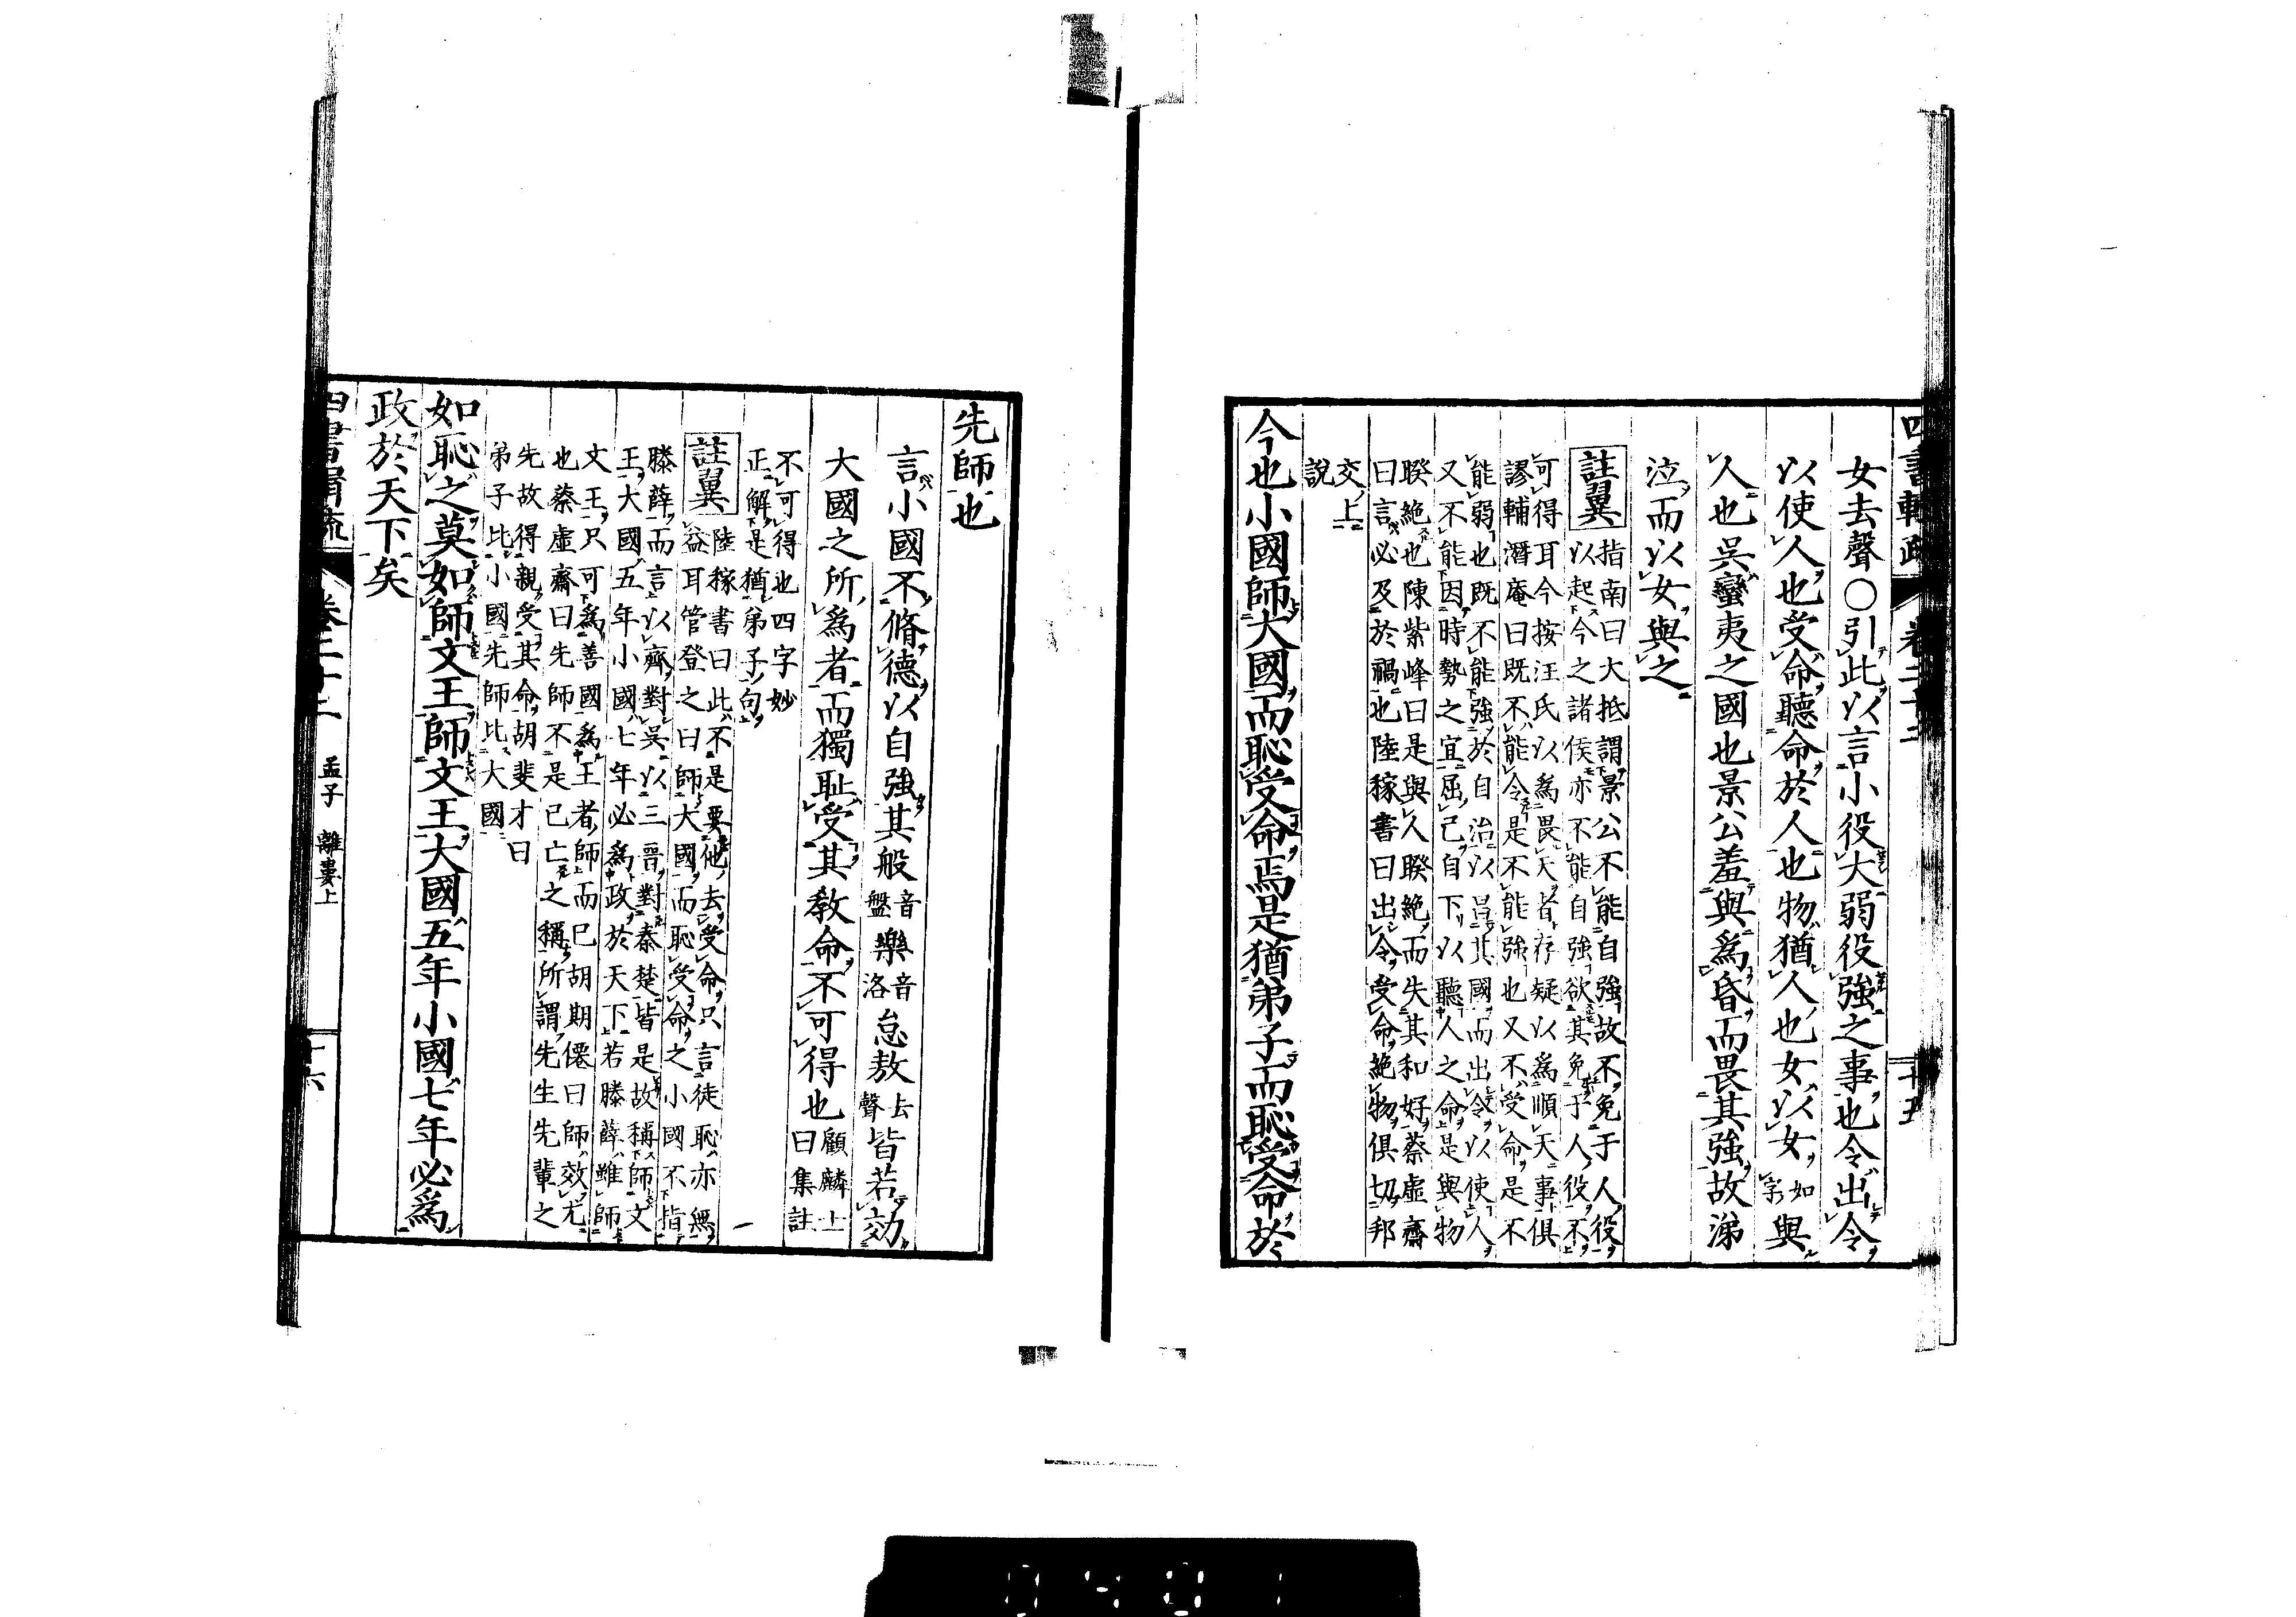 四書輯疏 卷二十二 十五
女去聲〇引此以言小役大弱役強之事也令出令
以使人也受命聽命於人也物猶人也女以女如字與
人也吳蠻夷之國也景公羞與爲昏而畏其強故涕
泣而以女與之
註翼 指南曰大抵謂景公不能自強故不免于人役
以起今之諸侯亦不能自強欲其免于人役不
可得耳今按汪氏以爲畏天者存疑以爲順天事俱
謬輔潛庵曰既不能令是不能強也又不受命是不
能弱也既不能強於自治以呂其國而出令以使人
又不能因時勢之宜屈己自下以聽人之命是與物
睽絶也陳紫峰曰是與人睽絶而失其和好蔡虛齋
曰言必及於禍也陸稼書曰出令受命絶物俱切邦
交上
說
今也小國師大國而恥受命焉是猶弟子而恥受命於
先師也
言小國不脩德以自強其般音盤樂音洛怠敖去聲皆若効
大國之所爲者而獨耻受其教命不可得也顧麟士曰集註
不可得也四字妙
正解是猶弟子句
註翼 陸稼書曰此不是要他去受命只言徒恥亦無
益耳管登之曰師大國而恥受命之小國不指
滕薛而言以齊對吳以三晉對秦楚皆是故稱師文
王大國五年小國七年必爲政於天下若滕薛雖師
文王只可爲善國爲王者師而已胡期僊曰師效尤
也蔡虛齋曰先師不是已亡之稱所謂先生先輩之
先故得親受其命胡斐才曰
弟子比小國先師比大國
如恥之莫如師文王師文王大國五年小國七年必爲
政於天下矣
四書輯疏 卷二十二 孟子 離婁上 十六